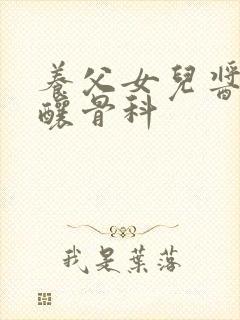 養父女兒醬
釀骨科
我是葉落